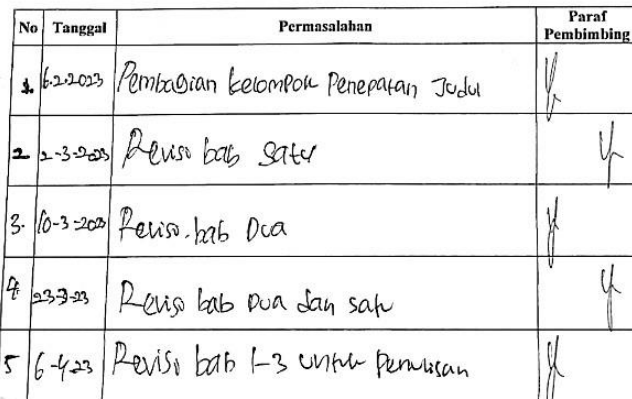 No Tanggal Permasalahan Paraf Pembimbing
1. 6.2.2023 Pembagian kelompok Penepatan Judul
2 2-3-2023 Revisi bab satu
3. 10-3-2023 Revisi. bab Dua
4 23-3-23 Revisi bab Dua dan satu
5 6-4-23 Revisi bab 1-3 untuk Penulisan